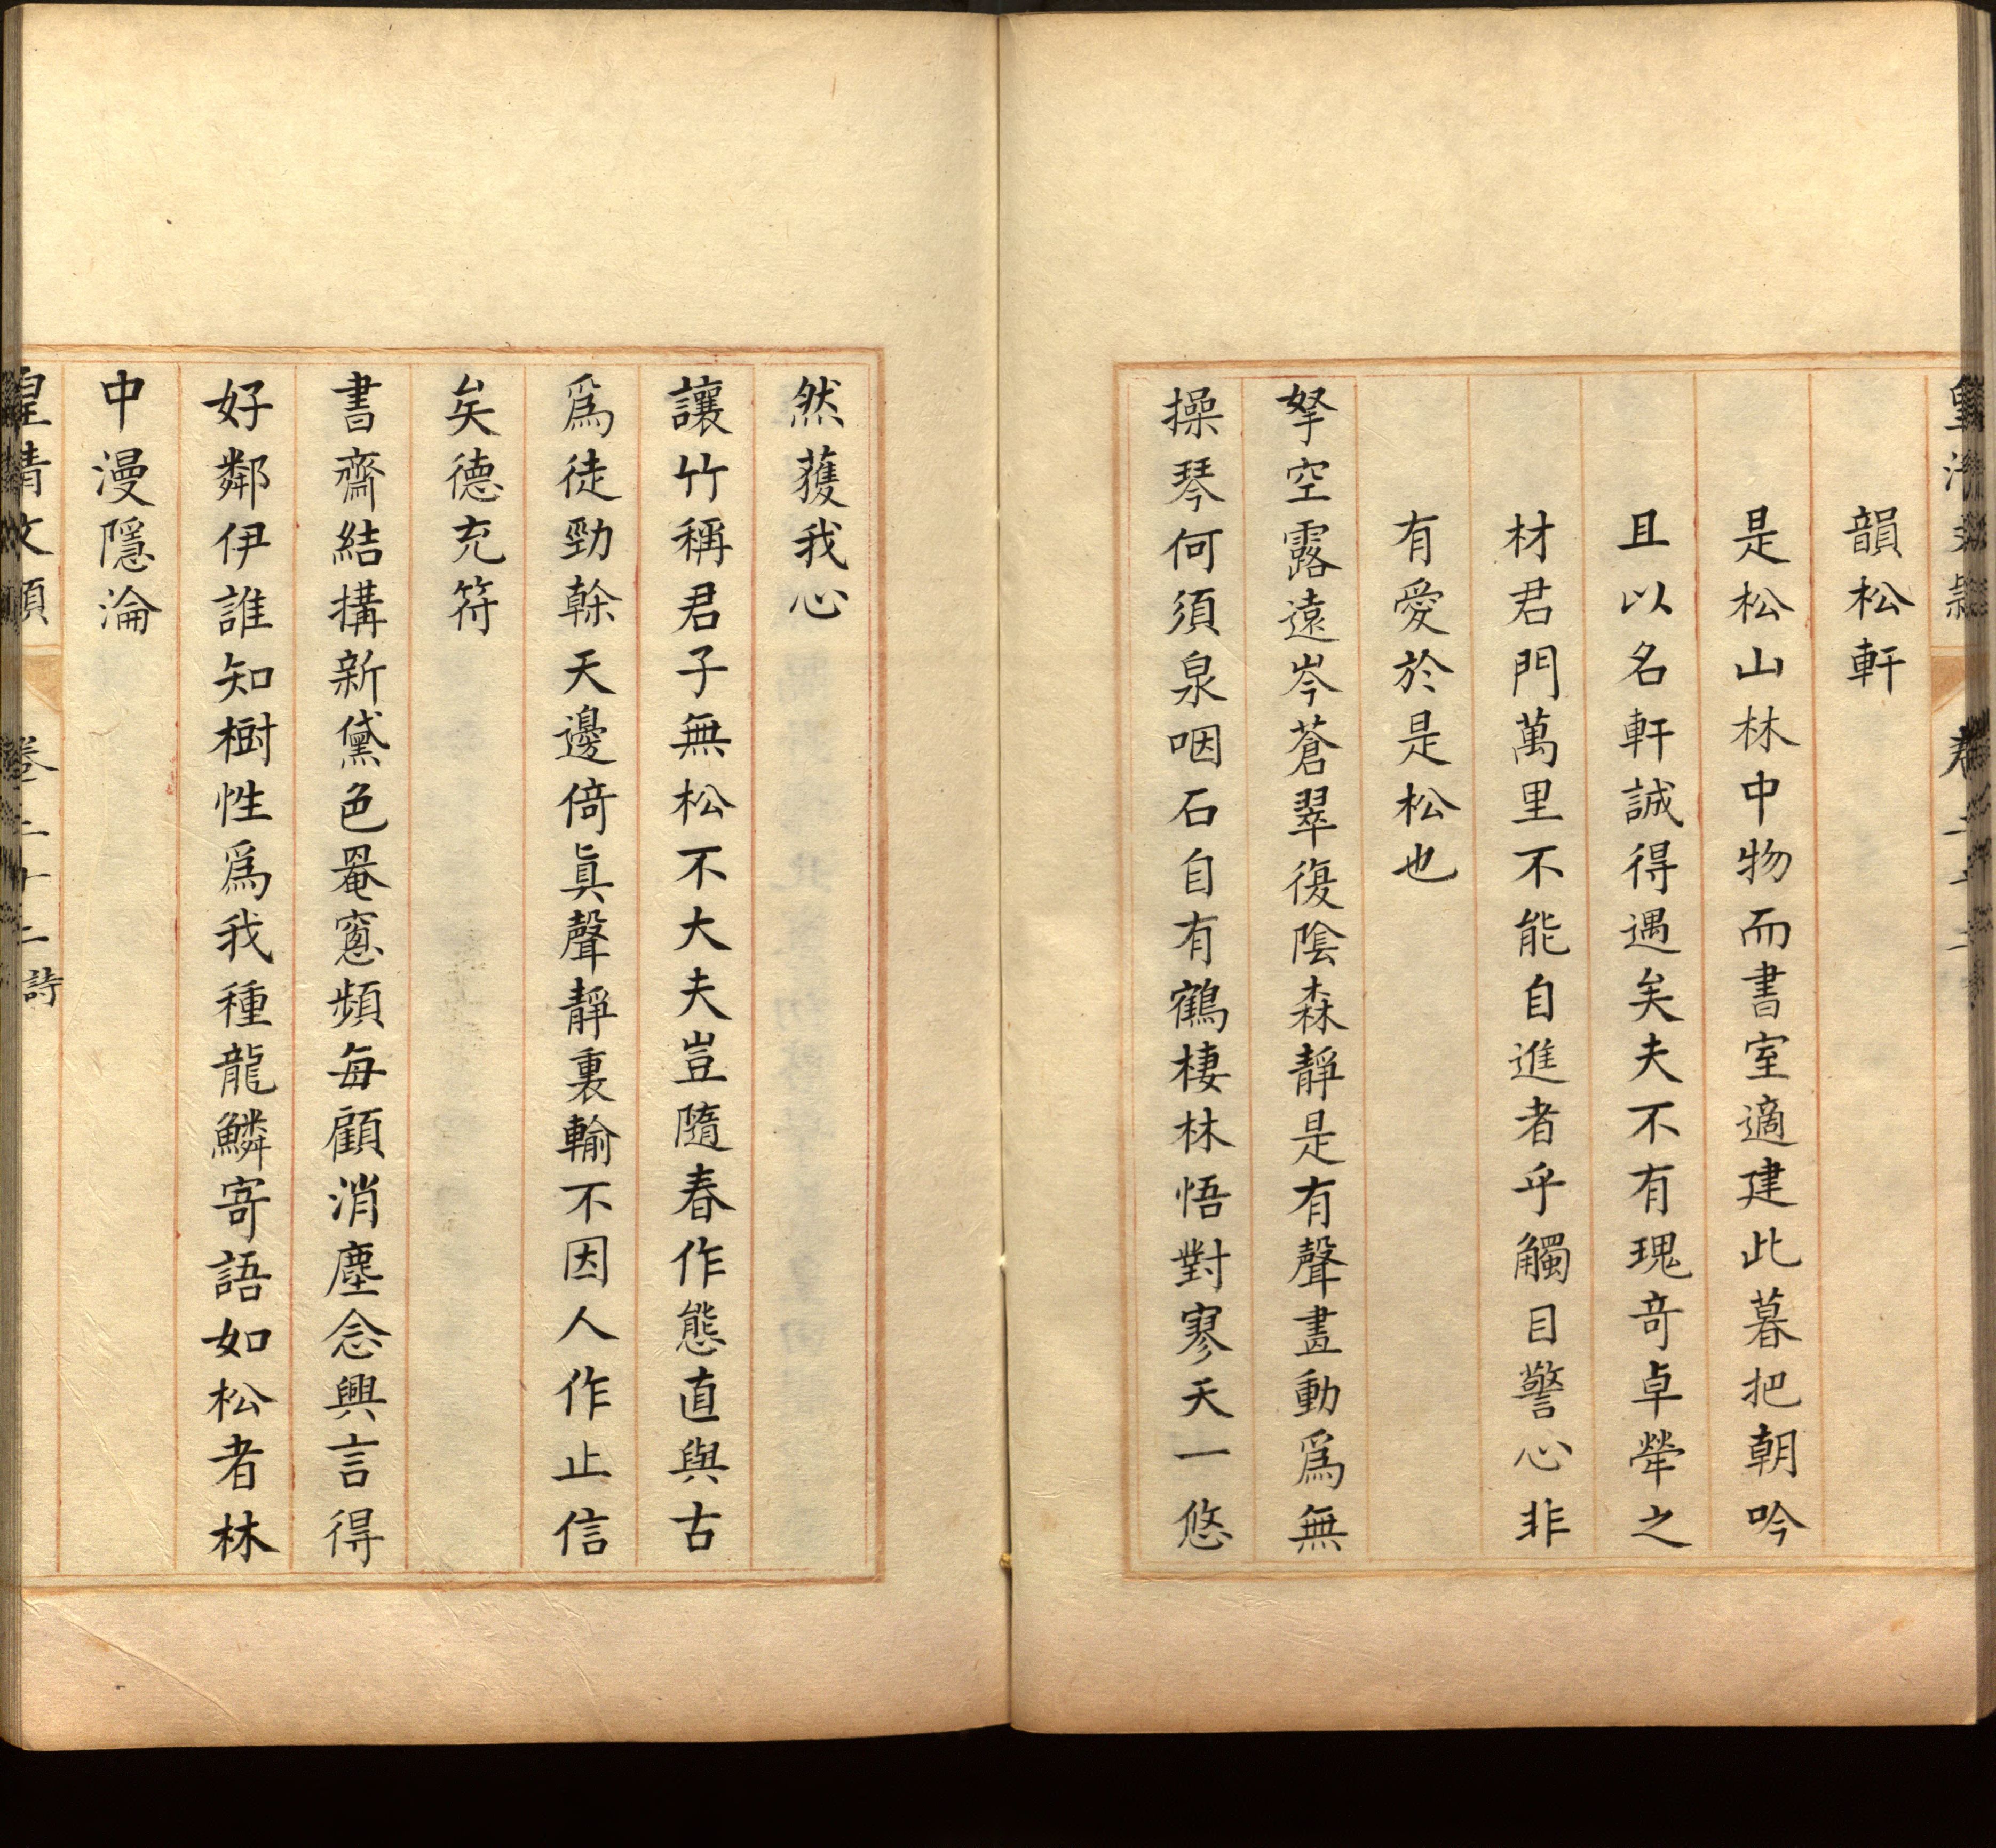 韻松軒
是松山林中物而書室適建此暮把朝吟
且以名軒誠得遇矣夫不有瑰奇卓犖之
材君門萬里不能自進者乎觸目警心非
有愛於是松也
拏空露遠岑蒼翠復陰森靜是有聲畫動爲無
操琴何須泉咽石自有鶴棲林悟對寥天一悠
然獲我心
讓竹稱君子無松不大夫豈隨春作態直與古
爲徒勁榦天邊倚眞聲靜裏輸不因人作止信
矣德充符
書齋結搆新黛色罨窻頻每顧消塵念興言得
好鄰伊誰知樹性爲我種龍鱗寄語如松者林
中漫隱淪
皇清文穎 卷二十二 詩